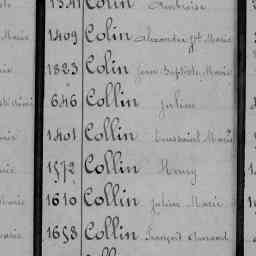 1341 Colin Ambroise
1409 Colin Alexandre Marie
1823 Colin Jean Baptiste Marie
646 Collin Julien
1401 Collin Toussaint Marie
1572 Collin Henry
1610 Collin Julien Marie
1658 Collin François Armand